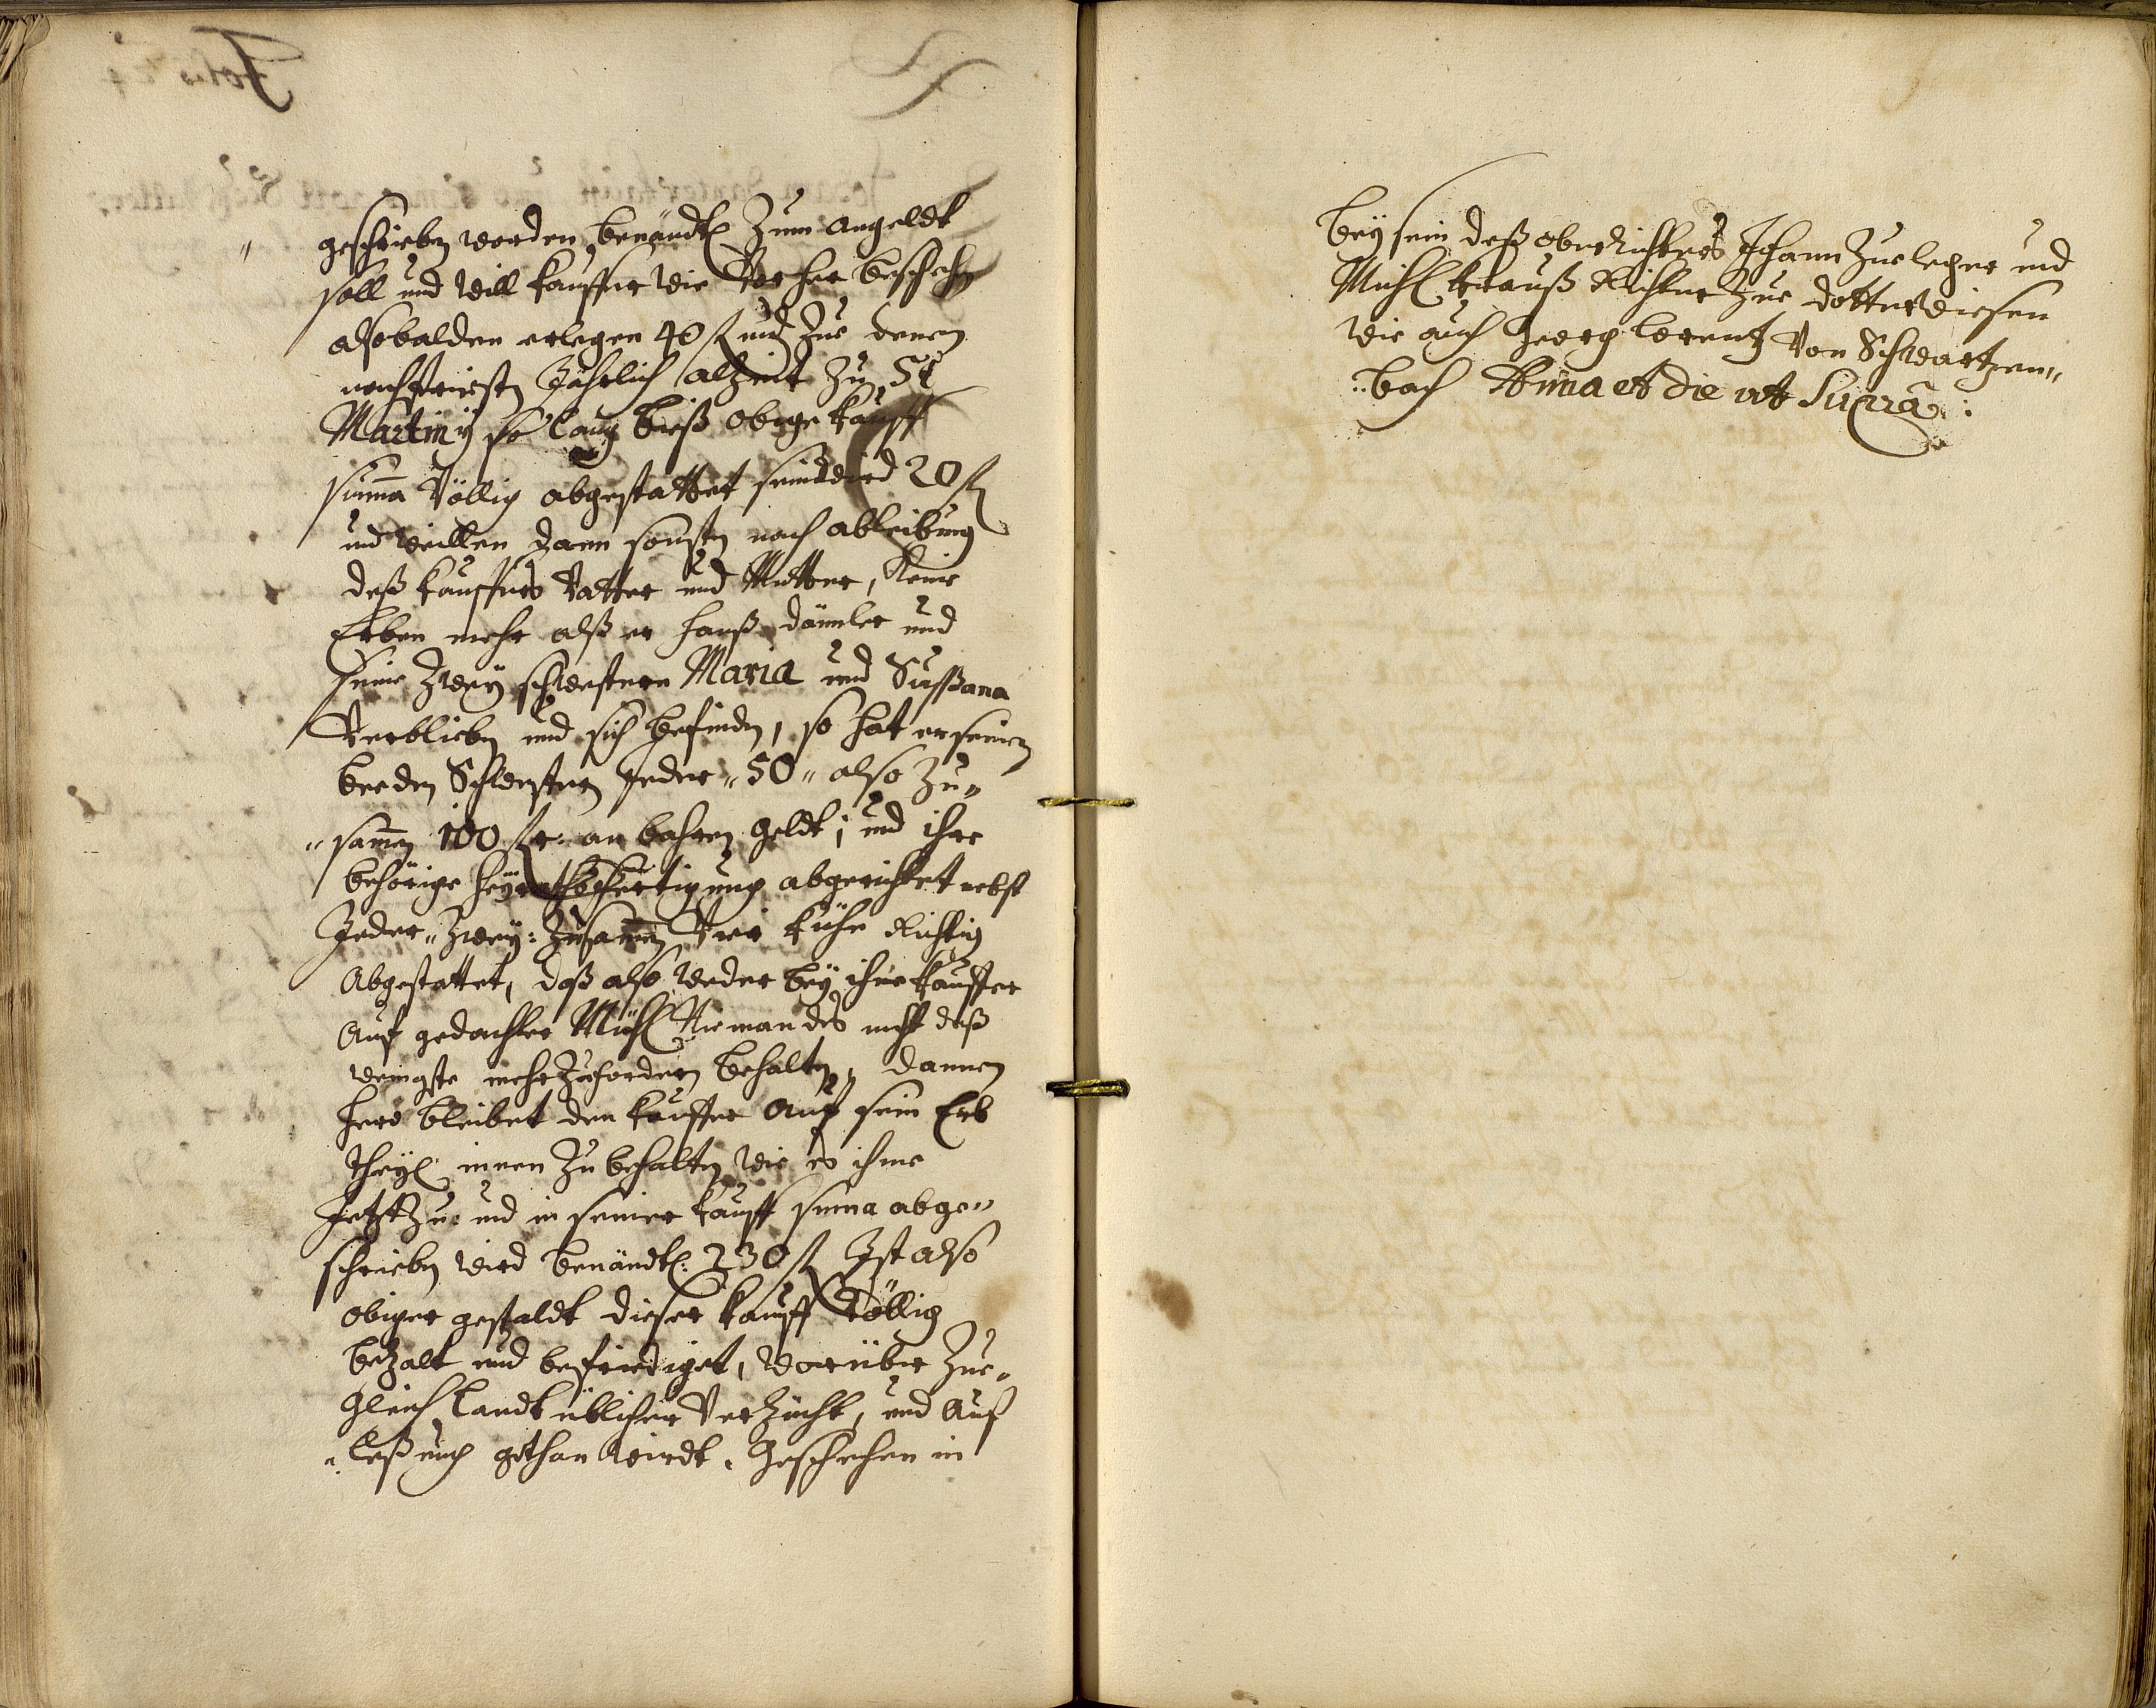 geschrieben worden, benändtl Zum angeldt
soll und will kauffer wie Vor her beschehen
alsobalden erlegen 40 fl und Zue denen
nachfristen Jährlich alzeit Zu St
Martiny so lang bieß obige kauff
suma Völlig abgestattet sein wird 20 fl
und weillen dann sonsten nach ableibung
deß kauffers Vatter und Mutter, Keine
Erben mehr alß er hanß dämler und
seine Zwey schwestern Maria und Sußana
Verblieben und sich befinden, so hat er seinen
beeden Schwestern Jeder „ 50 „ also Zu„
„samen 100 fl an bahren geldt; und ihre
behörige heyrathsfertigung abgerichtet nebst
Jeder „ Zwey: Zusamen Vier kühe Richtig
Abgestattet, daß also weder bey ihme kauffer
Auf gedachter Mühl Niemandes nicht daß
wenigste mehr Zufordern behalten, dannen
hero bleibet dem kauffer Auf sein Erb
theyl innen Zu behalten wie es ihme
Jetzt Zu: und in seiner kauff suma abge„
schrieben wird benändtl: 230 fl Ist also
obiger gestaldt dieser kauff Völlig
bezalt und befriediget, worüber Zue„
gleich landt üblicher Verzücht, und Auf
„laßung gethan wirdt. Geschehen in
bey sein deß oberRichters Johann Zueleger und
Michl Krauß Richter Zue dotterwiesen
wie auch Georg lorentz Von Schwartzen„
„bach Anna et die ut Supra: